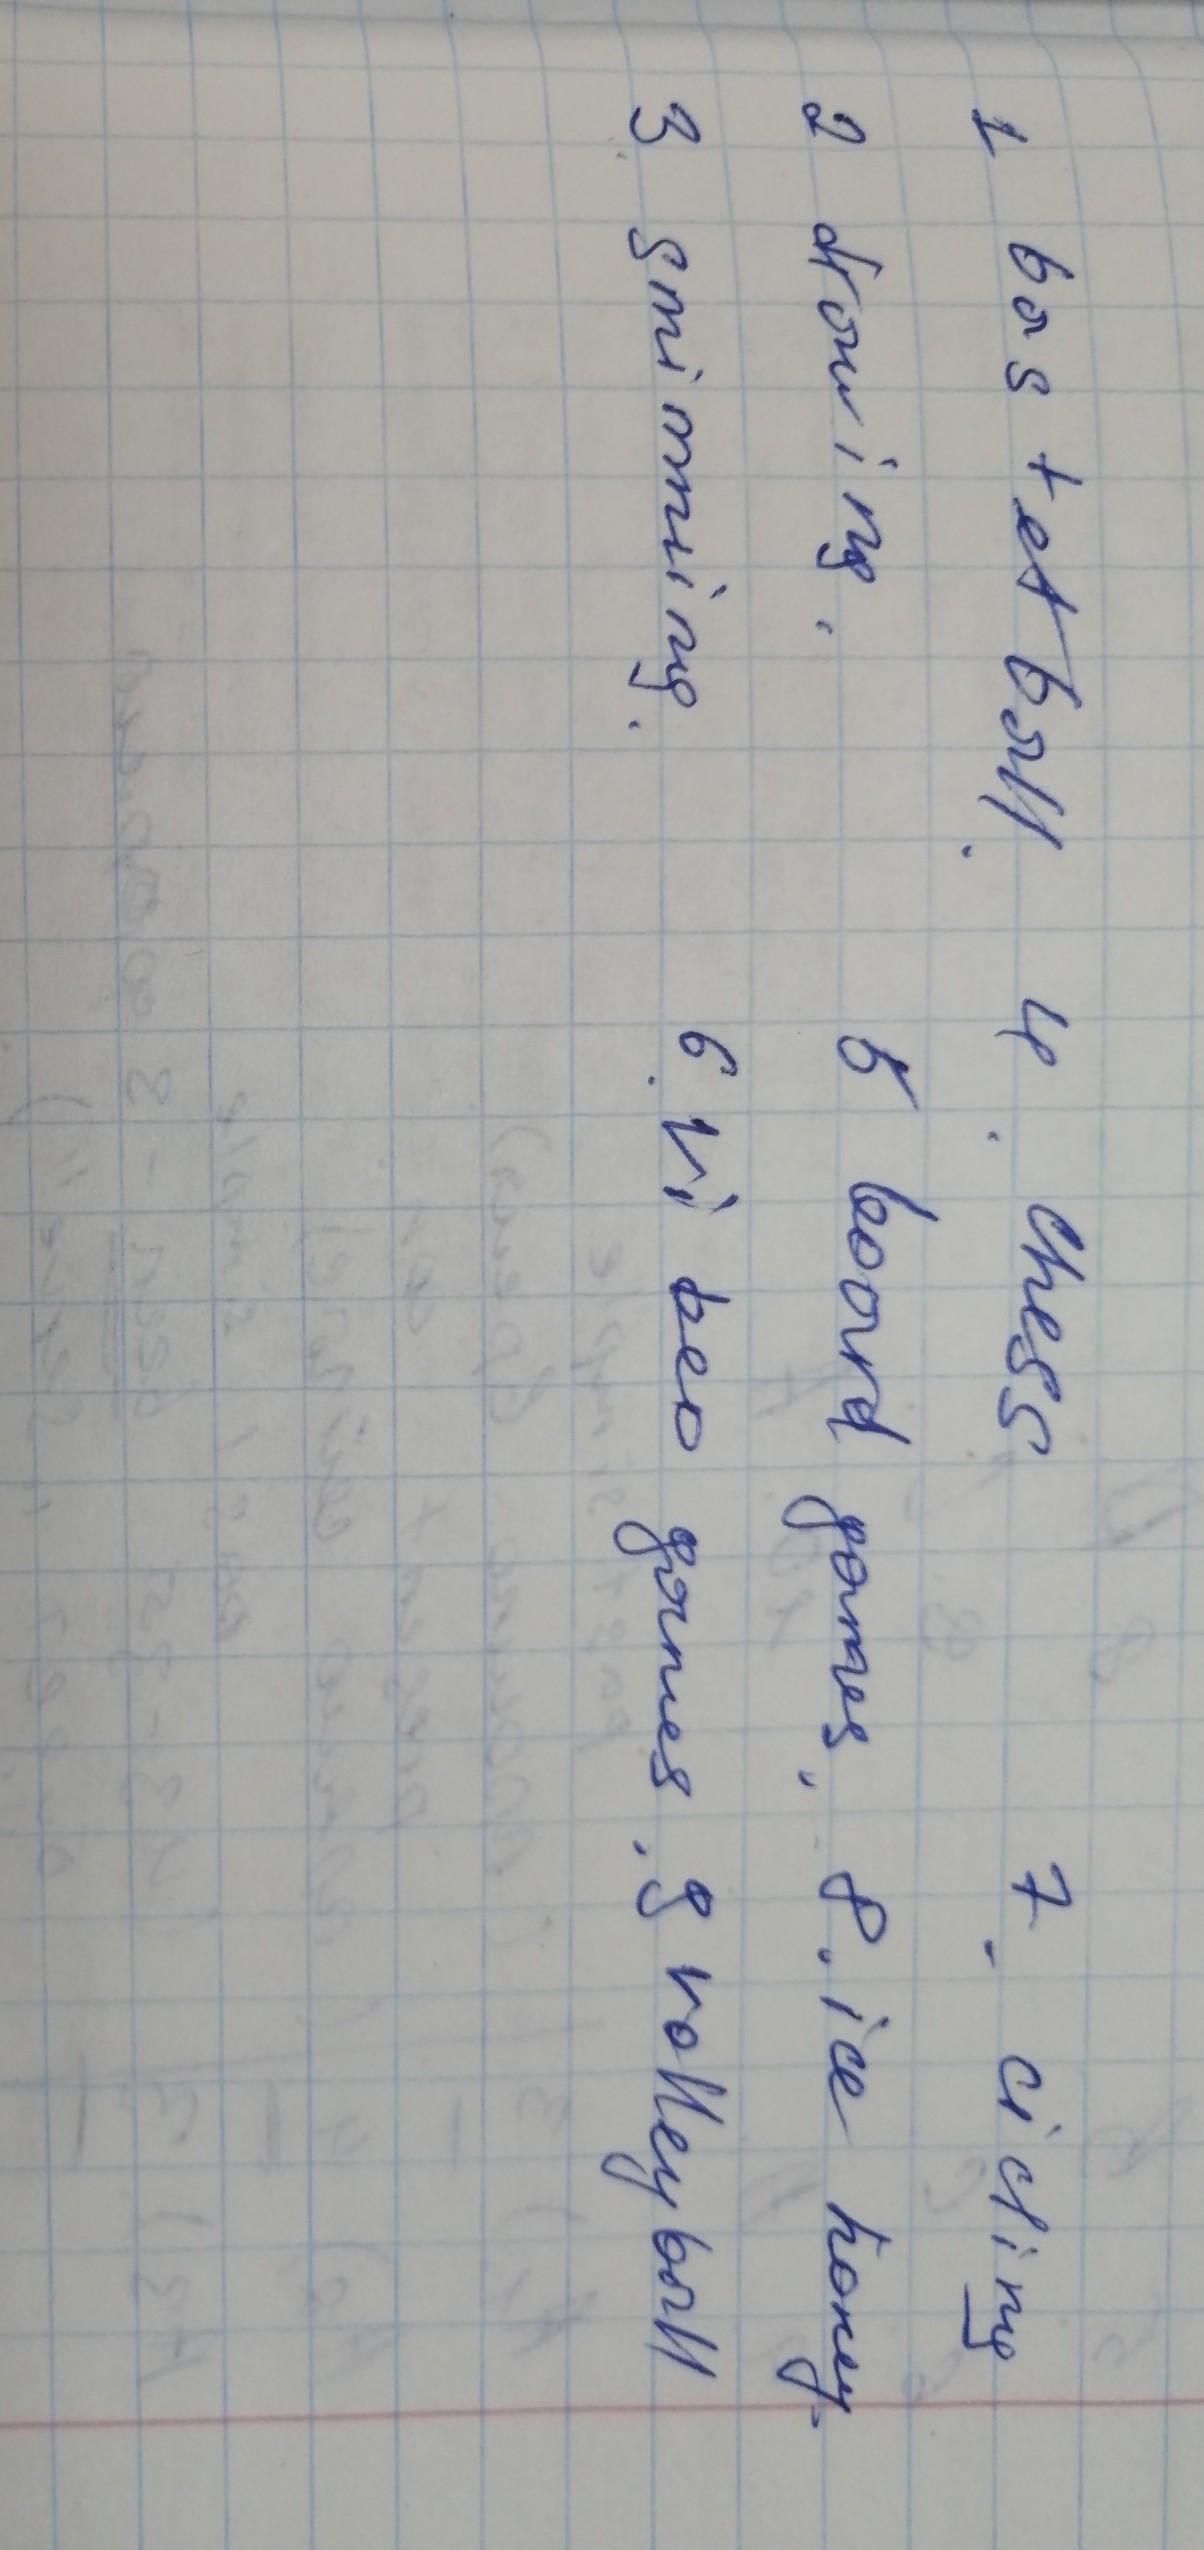 1 bastetball. 4. Chess 7. cicling
2 drawing. 5 board games. 8. ice honey.
3. smimming. 6. video games. 9 volleyball